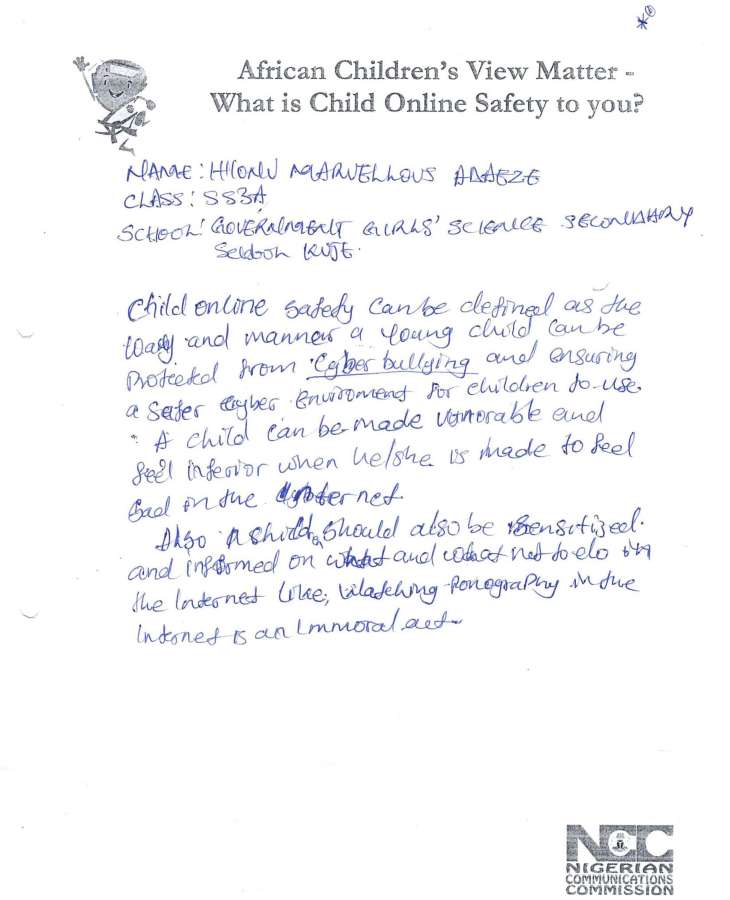 African Children's View Matter -
What is Child Online Safety to you?
NAME: MARVELLOUS ADAEZE
CLASS: SS3A
SCHOOL: GOVERNMENT GIRLS' SCIENCE SECONDARY
KUJE.
Child online safety can be defined as the
way and manner a young child can be
protected from Cyber bullying and ensuring
a safer cyber enviroment for children to use.
A child can be made and
feel inferior when he/she is made to feel
bad in the internet.
Also a child should also be sensitized.
and informed on what and what not to do in
the Internet like; Watching Ponography in the
Internet is an Immoral act.
NCC
NIGERIAN
COMMUNICATIONS
COMMISSION